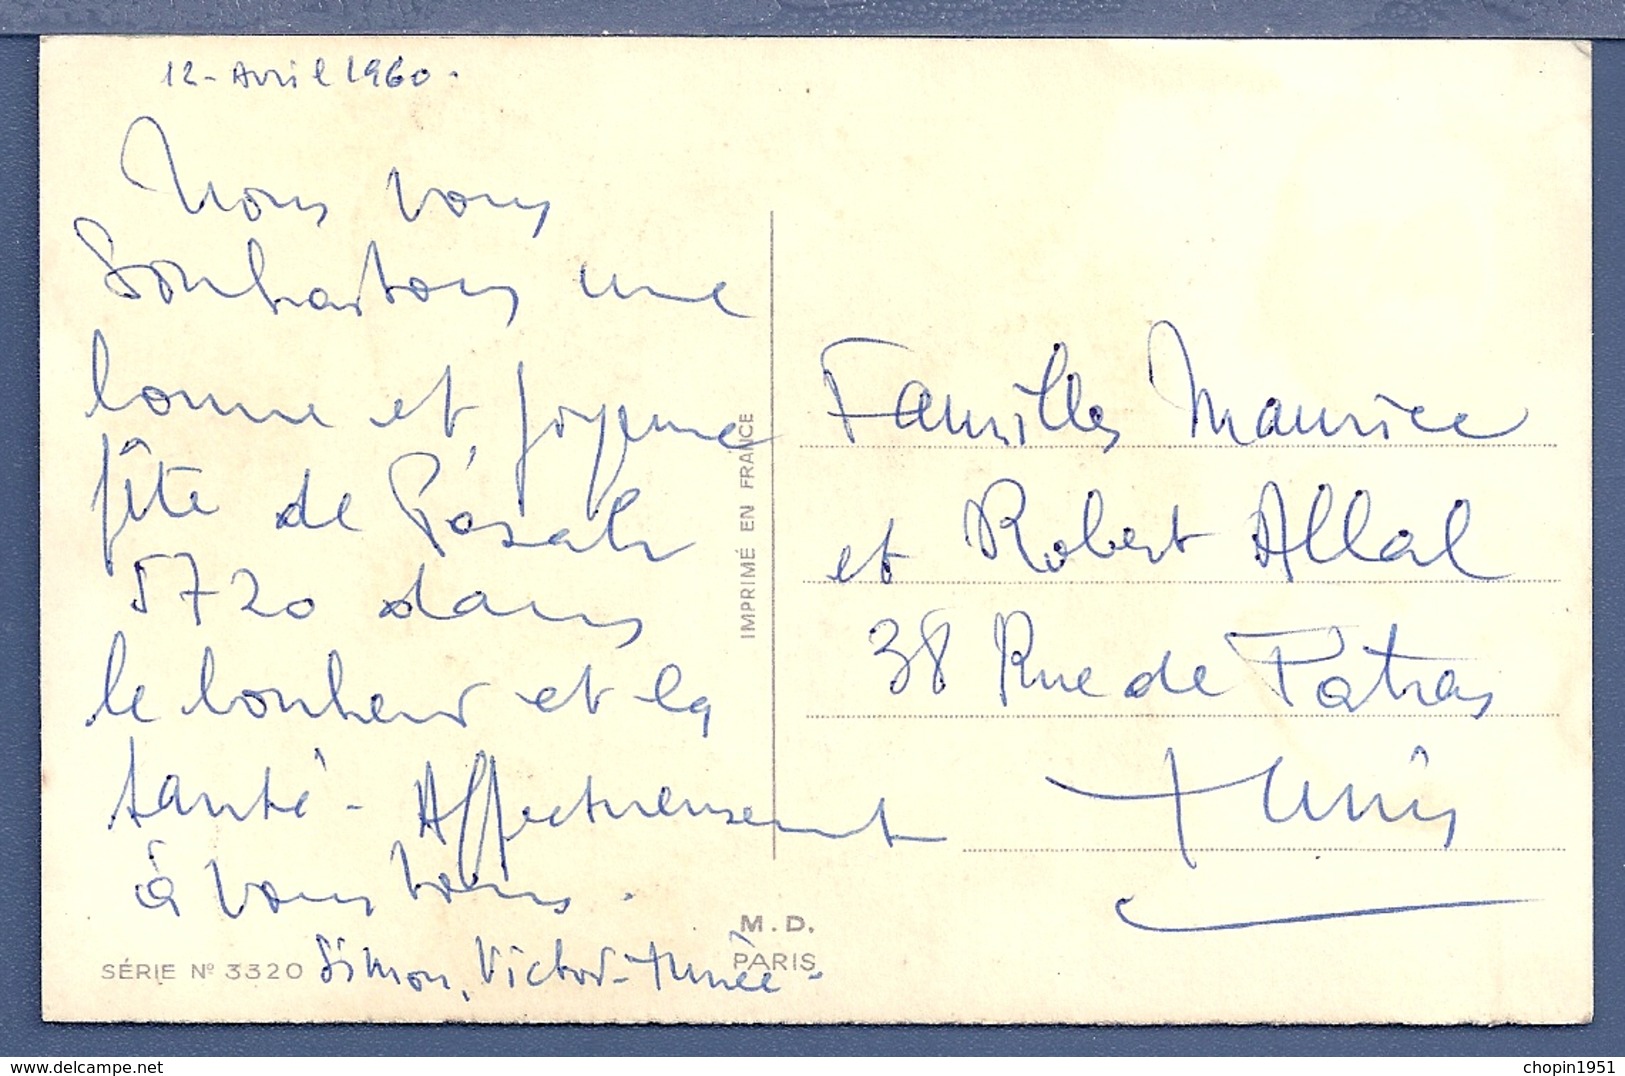 12 - Avril 1960.
Nous vous
souhaitons une
bonne et joyeuse
fête de Pésah
5720 dans
le bonheur et la
santé - Affectueusement
à vous tous.
Simon, Victor -
SÉRIE Nº 3320
IMPRIMÉ EN FRANCE
M. D.
PARIS
Familles Maurice
et Robert Allal
38 Rue de Patras
Tunis
delcampe.net
chopin1951